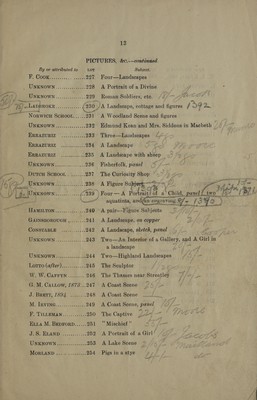 13
PICTURES, &c.—continued
By or attributed to LOT Subject.
F. COOK 227 Four—Landscapes
UNKNOWN 228 A Portrait of a Divine
UNKNOWN 229 Roman Soldiers, etc.
LADBROOKE 230 A Landscape, cottage and figures 1392
NORWICH SCHOOL 231 A Woodland Scene and figures
UNKNOWN 232 Edmund Kean and Mrs. Siddons in Macbeth
ERRAZURIZ 233 Three—Landscapes
ERRAZURIZ 234 A Landscape
ERRAZURIZ 235 A Landscape with sheep
UNKNOWN 236 Fisherfolk, panel
DUTCH SCHOOL 237 The Curiosity Shop
UNKNOWN 238 A Figure Subject
UNKNOWN 239 Four—A Portrait of a Child, panel; two
equations, and an engraving 1390
HAMILTON 240 A pair—Figure Subjects
GAINSBOROUGH 241 A Landscape, on copper
CONSTABLE 242 A Landscape, sketch, panel
UNKNOWN 243 Two—An Interior of a Gallery, and A Girl in
a landscape
UNKNOWN 244 Two—Highland Landscapes
LOTTO (after) 245 The Sculptor
W. W. CAFFYN 246 The Thames near Streatley
G. M. CALLOW, 1873 247 A Coast Scene
J. BRETT, 1894 248 A Coast Scene
M. IRVING 249 A Coast Scene, panel
F. TILLEMAN 250 The Captive
ELLA M. BEDFORD 251 "Mischief"
J. S. ELAND 252 A Portrait of a Girl
UNKNOWN 253 A Lake Scene
MORLAND 254 Pigs in a stye